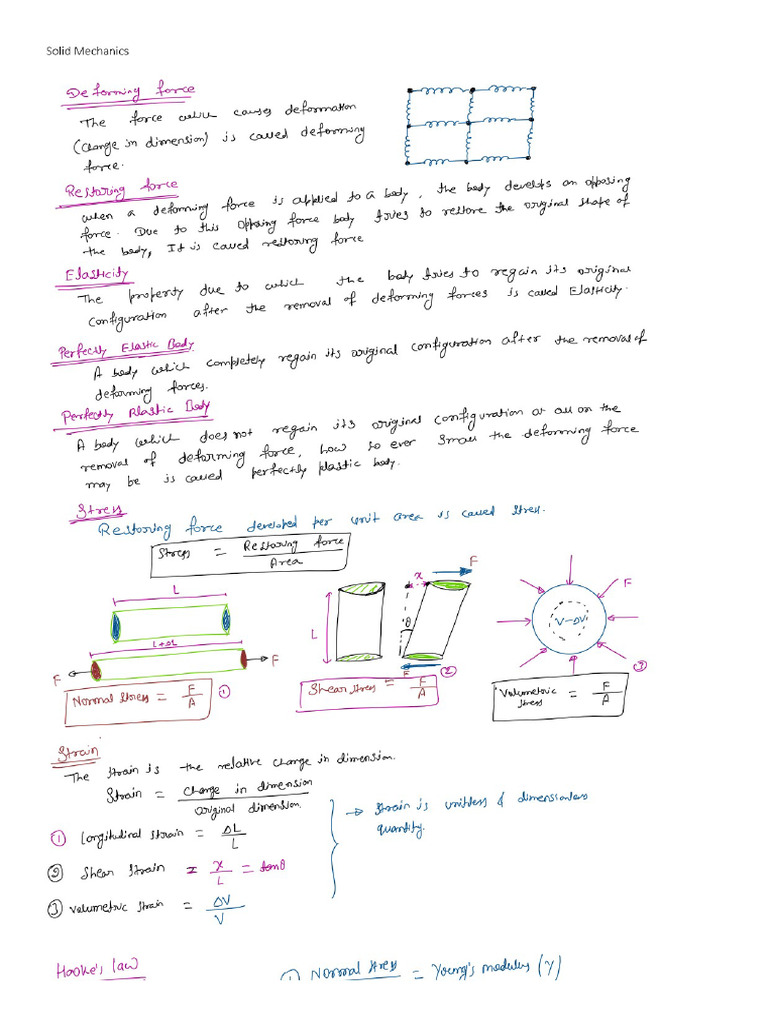 Solid Mechanics
Deforming force
The force which causes deformation
(change in dimension) is called deforming
force.
Restoring force
when a deforming force is applied to a body, the body develops an opposing
force. Due to this opposing force body tries to restore the original shape of
the body, It is called restoring force
Elasticity
The property due to which the body tries to regain its original
configuration after the removal of deforming forces is called Elasticity.
Perfectly Elastic Body
A body which completely regain its original configuration after the removal of
deforming forces.
Perfectly Plastic Body
A body which does not regain its original configuration at all on the
removal of deforming force, how so ever small the deforming force
may be is called perfectly plastic body.
Stress
Restoring force developed per unit area is called stress.
Stress = Restoring force / Area
L
L+ΔL
F F
Normal stress = F/A ①
x F
L θ
F ②
Shear stress = F/A
F
V-ΔV
③
Volumetric stress = F/A
Strain
The strain is the relative change in dimension.
Strain = change in dimension / original dimension.
① Longitudinal strain = ΔL/L
② Shear strain = x/L = tanθ
③ Volumetric strain = ΔV/V
→ Strain is unitless & dimensionless
quantity.
Hooke's law
① Normal stress = Young's modulus (Y)